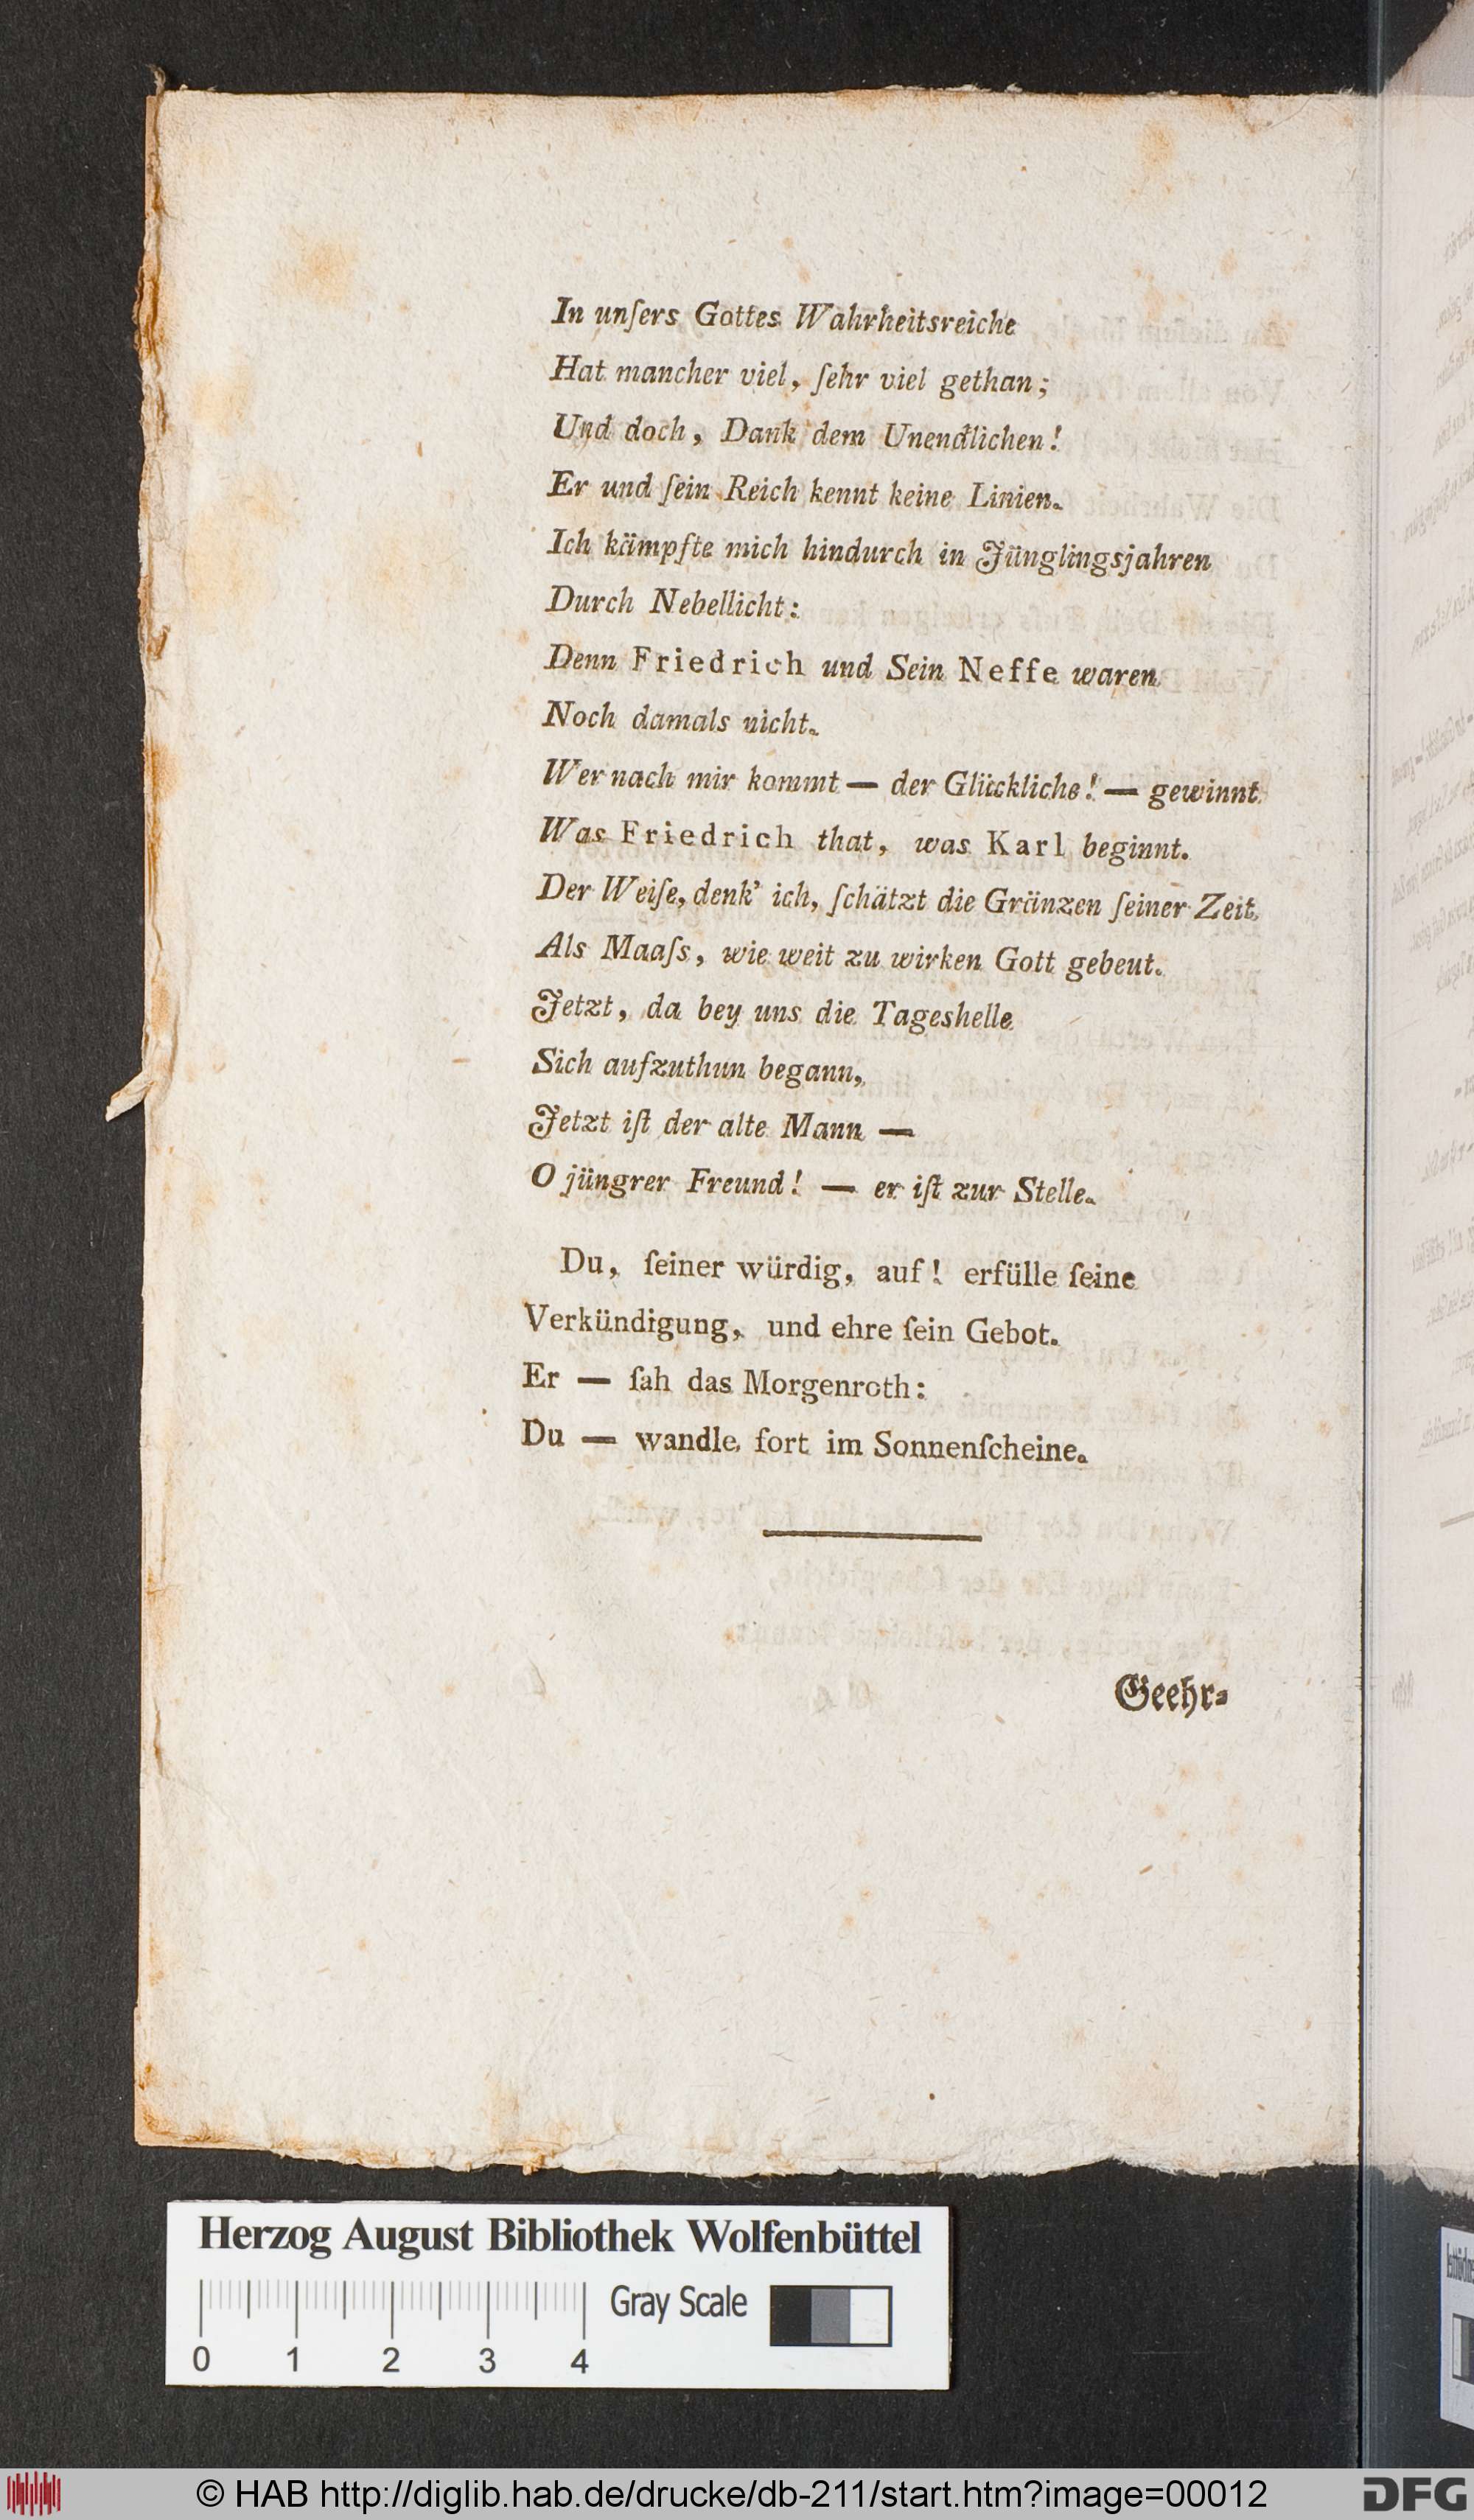 In unſers Gottes Wahrheitsreiche
Hat mancher viel, ſehr viel gethan;
Und doch, Dank dem Unendlichen!
Er und ſein Reich kennt keine Linien.
Ich kämpfte mich hindurch in Jünglingsjahren
Durch Nebellicht:
Denn Friedrich und Sein Neffe waren
Noch damals nicht.
Wer nach mir kommt — der Glückliche! — gewinnt
Was Friedrich that, was Karl beginnt.
Der Weiſe, denk' ich, ſchätzt die Gränzen ſeiner Zeit,
Als Maaſs, wie weit zu wirken Gott gebeut.
Jetzt, da bey uns die Tageshelle
Sich aufzuthun begann,
Jetzt iſt der alte Mann —
O jüngrer Freund! — er iſt zur Stelle.
Du, ſeiner würdig, auf! erfülle ſeine
Verkündigung, und ehre ſein Gebot.
Er — ſah das Morgenroth:
Du — wandle fort im Sonnenſcheine.
Geehr⸗
Herzog August Bibliothek Wolfenbüttel
Gray Scale
0 1 2 3 4
© HAB http://diglib.hab.de/drucke/db-211/start.htm?image=00012
DFG